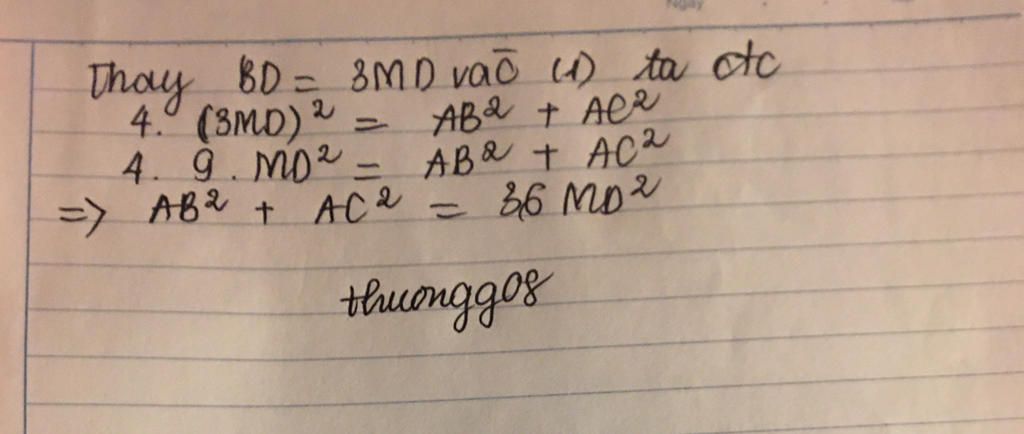 Thay BD = 3MD vaō (1) ta đtc
4. (3MD)² = AB² + AC²
4. 9. MD² = AB² + AC²
=> AB² + AC² = 36 MD²
thuongg08